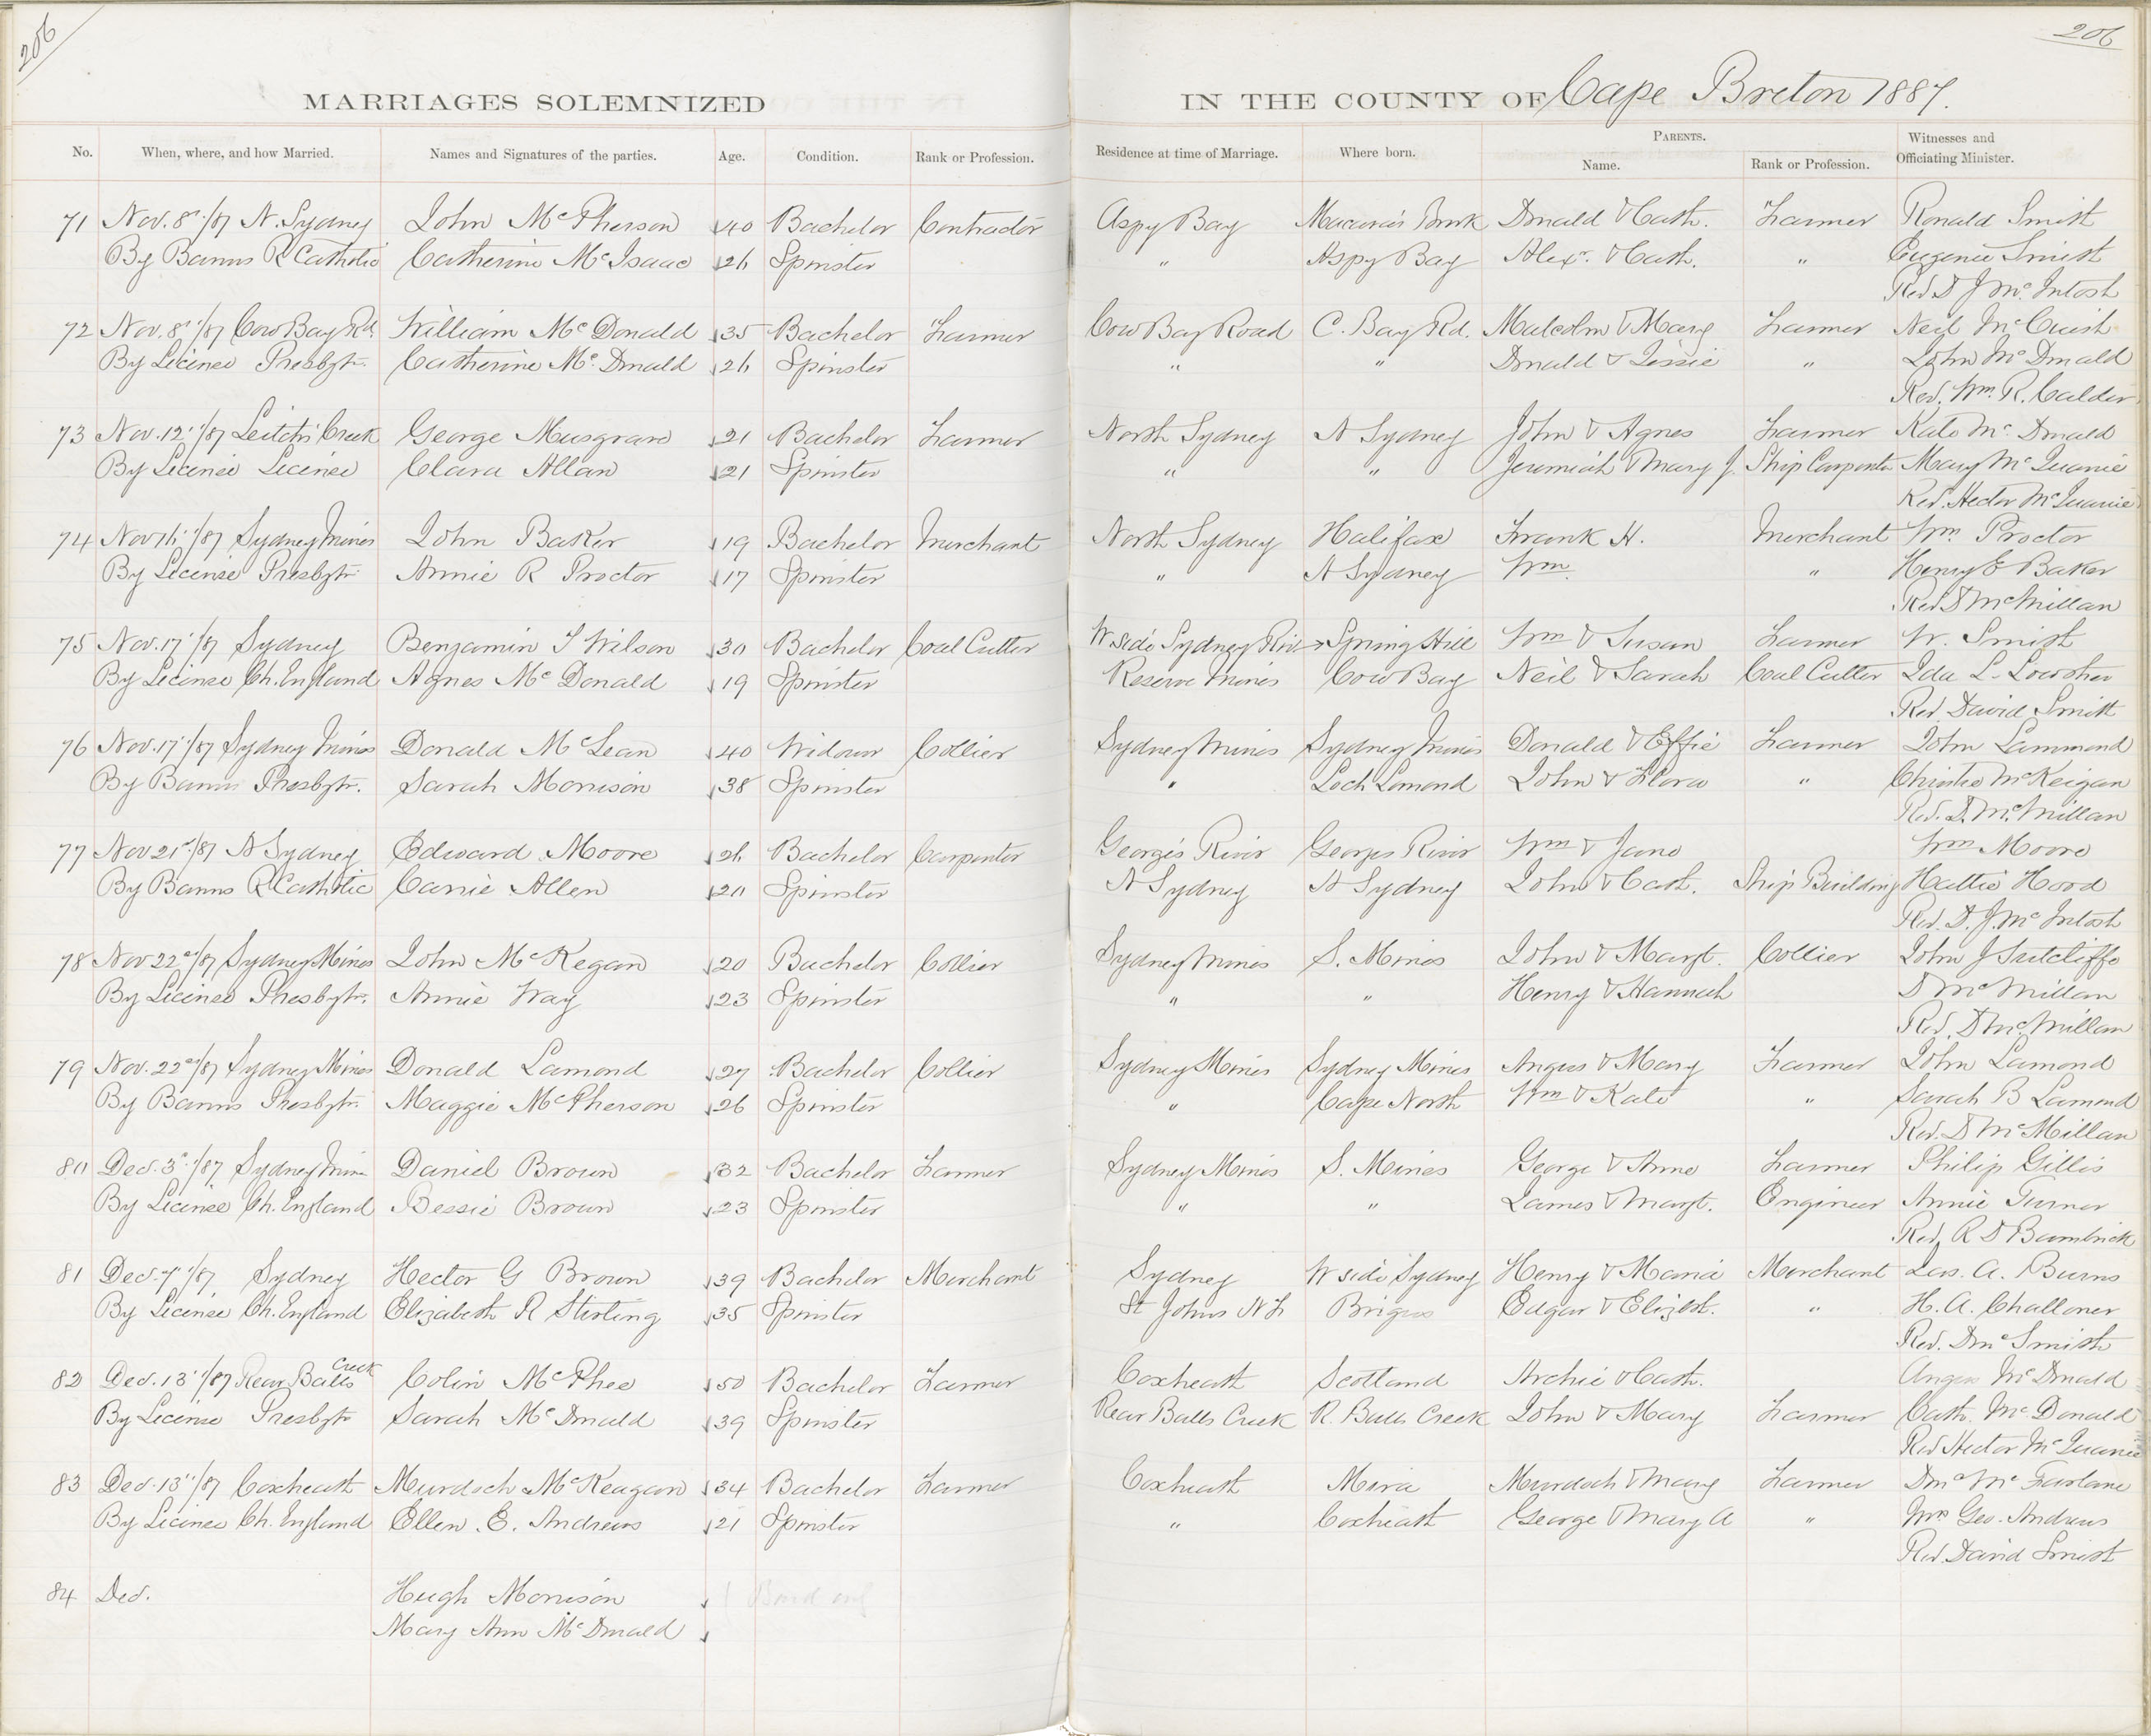 206
206
MARRIAGES SOLEMNIZED IN THE COUNTY OF Cape Breton 1887.
No. When, where, and how Married. Names and Signatures of the parties. Age. Condition. Rank or Profession. Residence at time of Marriage. Where born. PARENTS. Name. Rank or Profession. Witnesses and Officiating Minister.
71 Nov. 8th/87 N. Sydney John McPherson 40 Bachelor Contractor Aspy Bay Donald & Cath. Farmer Ronald Smith
By Banns R Catholic Catherine McIsaac 26 Spinster " Aspy Bay Alexr. & Cath. " Eugenie Smith
Rev D J McIntosh
72 Nov. 8th/87 Cow Bay Rd. William McDonald 35 Bachelor Farmer Cow Bay Road C. Bay Rd. Malcolm & Mary Farmer Neil McCuish
By License Presbytr. Catherine McDonald 26 Spinster " " Donald & Jessie " John McDonald
Rev. Wm. R. Calder
73 Nov. 12'/87 Leitch's Creek George Musgrave 21 Bachelor Farmer North Sydney N Sydney John & Agnes Farmer Kate McDonald
By License License Clara Allan 21 Spinster " " Jeremiah & Mary J. Ship Carpenter Mary McQuarrie
Rev. Hector McQuarrie
74 Nov 16'/87 Sydney Mines John Baker 19 Bachelor Merchant North Sydney Halifax Frank H. Merchant Wm. Proctor
By License Presbytr. Annie R Proctor 17 Spinster " N Sydney Wm. " Henry E Baker
Rev D McMillan
75 Nov. 17'/87 Sydney Benjamin T Wilson 30 Bachelor Coal Cutter W side Sydney River Spring Hill Wm & Susan Farmer W. Smith
By License Ch. England Agnes McDonald 19 Spinster Reserve Mines Cow Bay Neil & Sarah Coal Cutter Ida L. Lowther
Rev. David Smith
76 Nov. 17'/87 Sydney Mines Donald McLean 40 Widower Collier Sydney Mines Sydney Mines Donald & Effie Farmer John Lammond
By Banns Presbytr. Sarah Morrison 38 Spinster " Loch Lomond John & Flora " Christie McKeigan
Rev. D. McMillan
77 Nov 21st/87 N Sydney Edward Moore 26 Bachelor Carpenter George's River Georges River Wm & Jane Wm Moore
By Banns R Catholic Carrie Allen 20 Spinster N Sydney N Sydney John & Cath. Ship Building Hattie Hood
Rev. D. J. McIntosh
78 Nov 22nd/87 Sydney Mines John McKegan 20 Bachelor Collier Sydney Mines S. Mines John & Margt. Collier John J Sutcliffe
By License Presbytr. Annie Way 23 Spinster " " Henry & Hannah D McMillan
Rev. D McMillan
79 Nov. 22nd/87 Sydney Mines Donald Lamond 27 Bachelor Collier Sydney Mines Sydney Mines Angus & Mary Farmer John Lamond
By Banns Presbytr. Maggie McPherson 26 Spinster " Cape North Wm & Kate " Sarah B Lamond
Rev. D McMillan
80 Dec. 3rd/87 Sydney Mine Daniel Brown 32 Bachelor Farmer Sydney Mines S. Mines George & Anne Farmer Philip Gillis
By License Ch. England Bessie Brown 23 Spinster " " James & Margt. Engineer Annie Turner
Rev. R D Bambrick
81 Dec. 7'/87 Sydney Hector G Brown 39 Bachelor Merchant Sydney W side Sydney Henry & Maria Merchant Jas. A. Burns
By License Ch. England Elizabeth R Stirling 35 Spinster St Johns N F Brigus Edgar & Elizbt. " H. A. Challoner
Rev. Dd. Smith
82 Dec. 13'/87 Rear Balls Creek Colin McPhee 50 Bachelor Farmer Coxheath Scotland Archie & Cath. Angus McDonald
By License Presbytr Sarah McDonald 39 Spinster Rear Balls Creek R. Balls Creek John & Mary Farmer Cath. McDonald
Rev Hector McQuarrie
83 Dec. 13'/87 Coxheath Murdoch McKeagan 34 Bachelor Farmer Coxheath Mira Murdoch & Mary Farmer McFarlane
By License Ch. England Ellen E. Andrews 21 Spinster " Coxheath George & Mary A " Mrs Geo. Andrews
Rev. David Smith
84 Dec. Hugh Morrison
Mary Ann McDonald